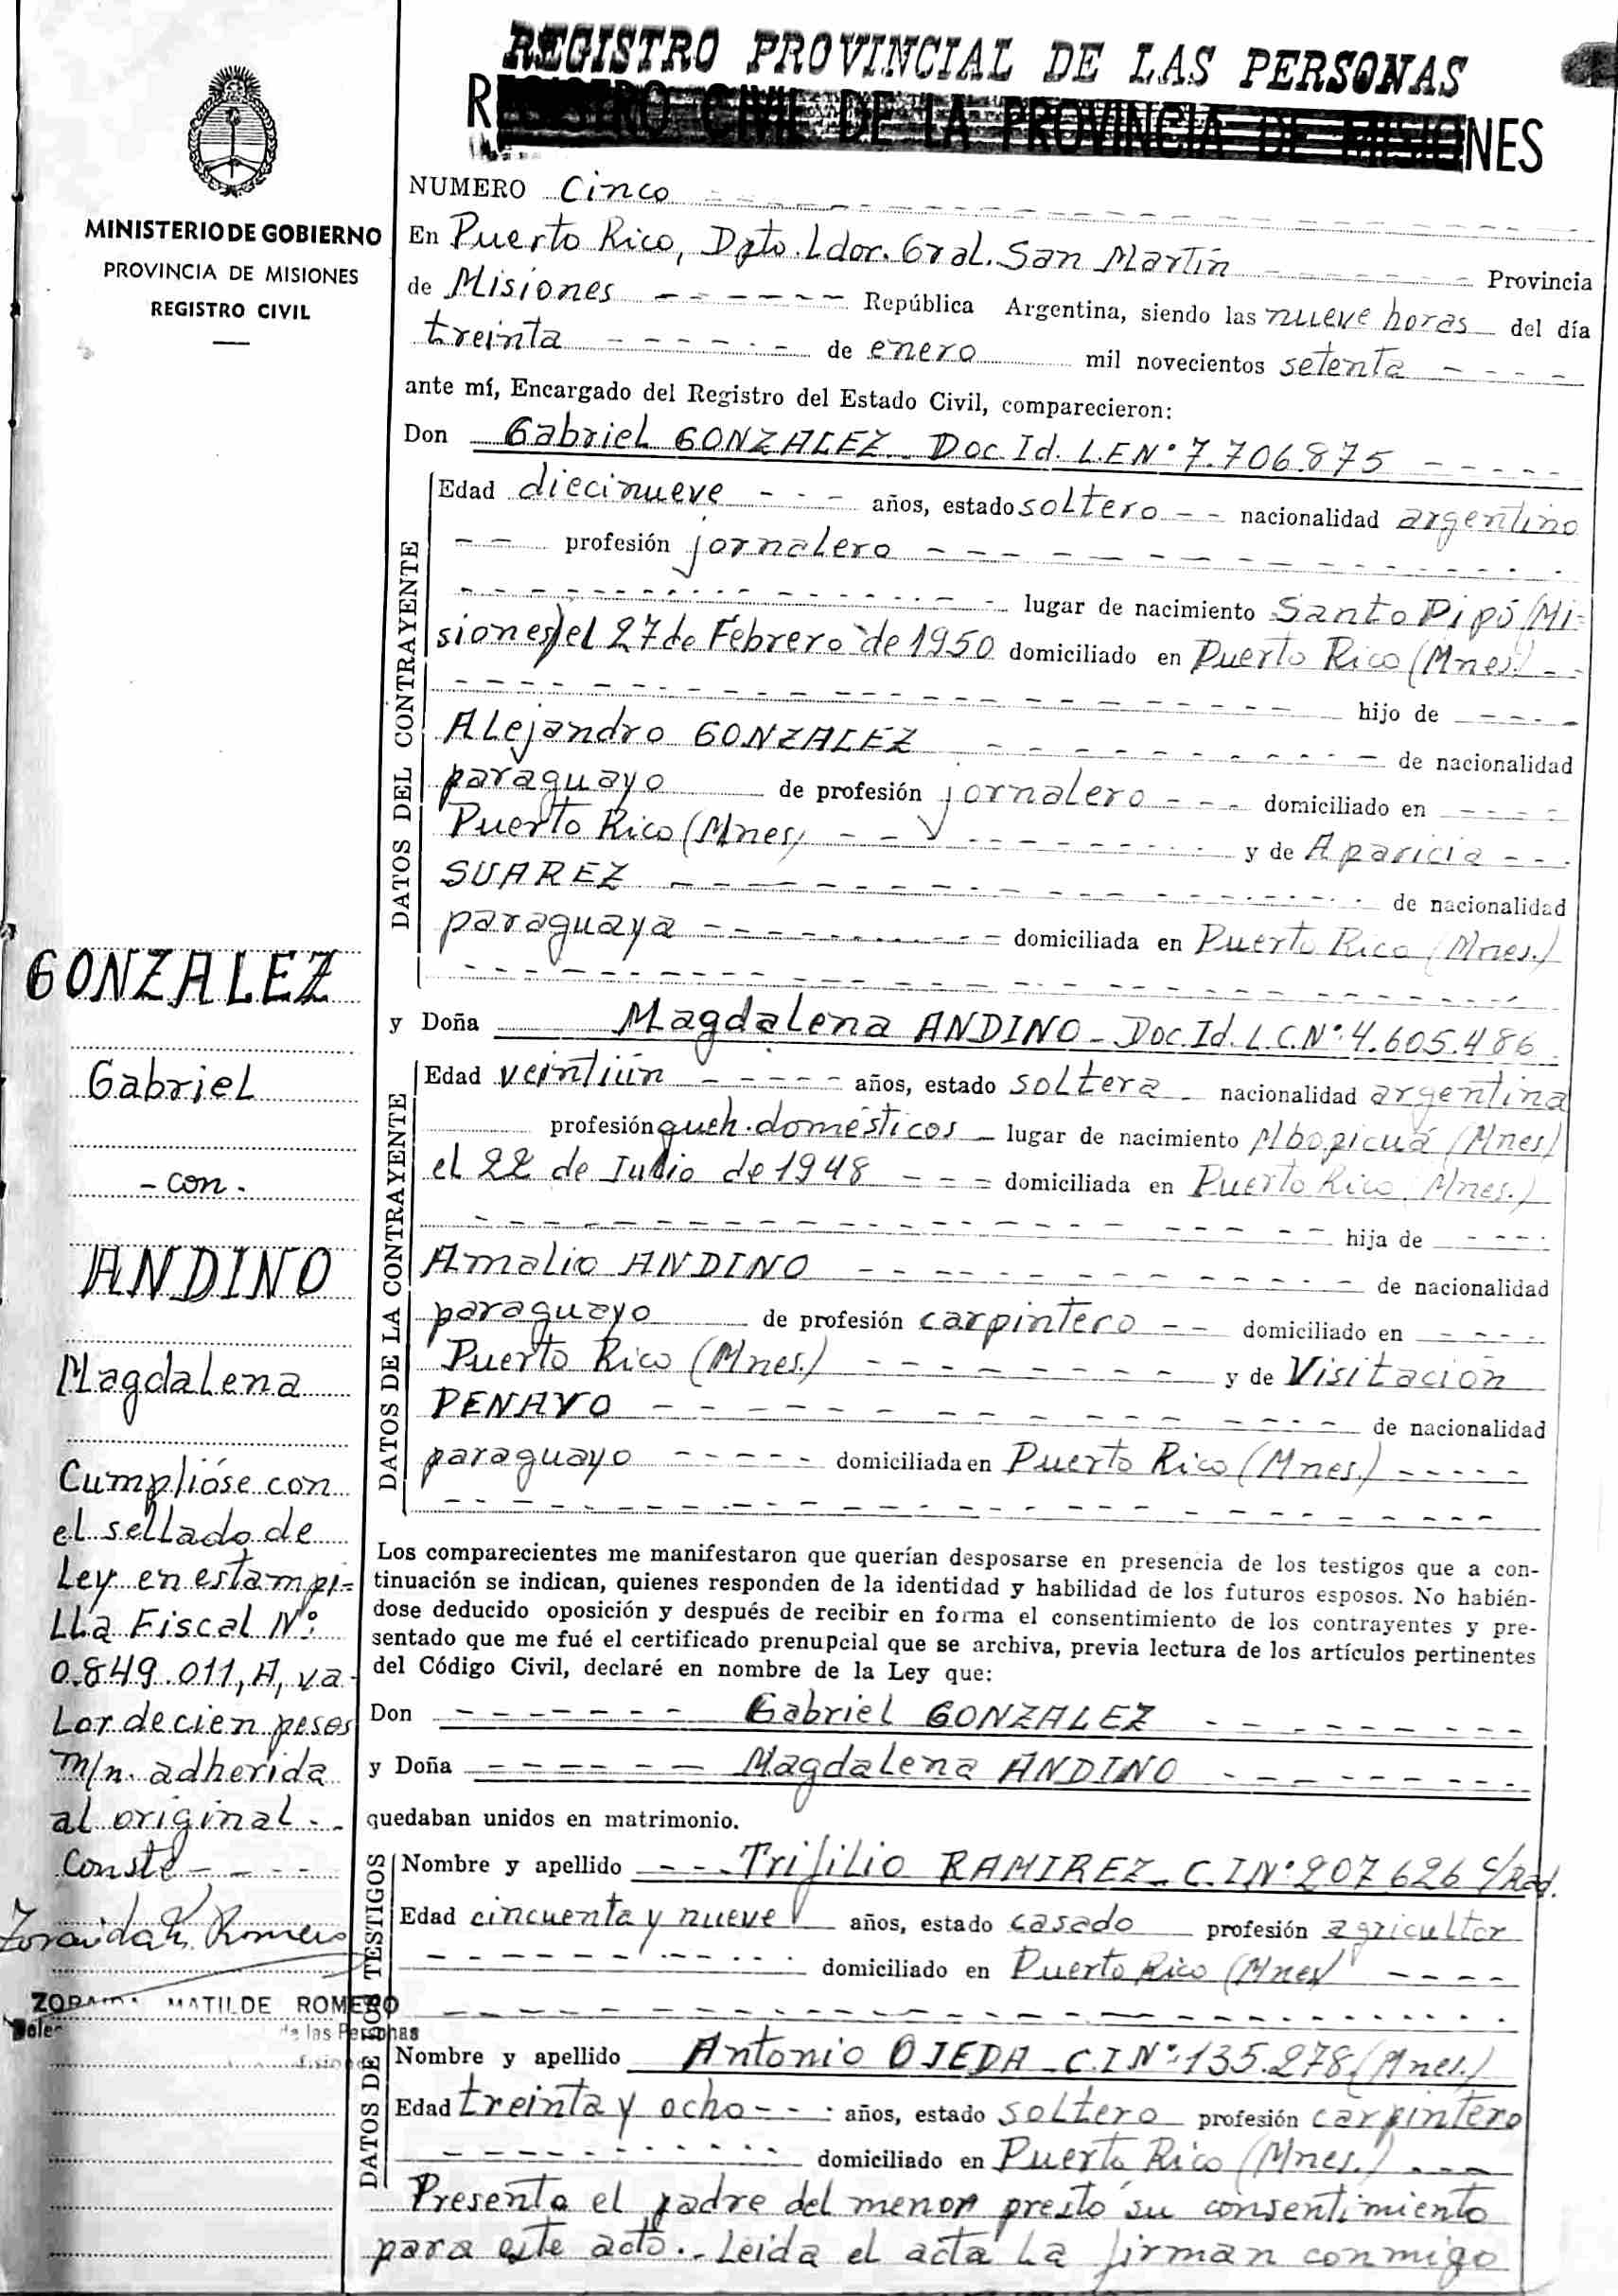 REGISTRO PROVINCIAL DE LAS PERSONAS
REGISTRO CIVIL DE LA PROVINCIA DE MISIONES
MINISTERIO DE GOBIERNO
PROVINCIA DE MISIONES
REGISTRO CIVIL
GONZALEZ
Gabriel
- con -
ANDINO
Magdalena
Cumplióse con
el sellado de
Ley en estampi=
lla Fiscal Nº:
0.849.011, A, va-
Lor de cien pesos
m/n. adherida
al original - -
Conste - - - -
Zoraida M. Romero
ZORAIDA MATILDE ROMERO
de las Personas
NUMERO Cinco
En Puerto Rico, Dpto. Ldor. Gral. San Martín Provincia
de Misiones República Argentina, siendo las nueve horas del día
treinta de enero mil novecientos setenta
ante mí, Encargado del Registro del Estado Civil, comparecieron:
Don Gabriel GONZALEZ - Doc. Id. L.E Nº 7.706.875
DATOS DEL CONTRAYENTE
Edad diecinueve años, estado soltero nacionalidad argentino
profesión jornalero
lugar de nacimiento Santo Pipó (Mi=
siones) el 27 de Febrero de 1950 domiciliado en Puerto Rico (Mnes.)
hijo de
Alejandro GONZALEZ de nacionalidad
paraguayo de profesión jornalero domiciliado en
Puerto Rico (Mnes) y de Aparicia
SUAREZ de nacionalidad
paraguaya domiciliada en Puerto Rico (Mnes.)
y Doña Magdalena ANDINO - Doc. Id. L.C. Nº: 4.605.486
DATOS DE LA CONTRAYENTE
Edad veintiún años, estado soltera nacionalidad argentina
profesión queh. domésticos lugar de nacimiento Mbopicuá (Mnes)
el 22 de Julio de 1948 domiciliada en Puerto Rico (Mnes.)
hija de
Amalio ANDINO de nacionalidad
paraguayo de profesión carpintero domiciliado en
Puerto Rico (Mnes.) y de Visitación
PENAYO de nacionalidad
paraguayo domiciliada en Puerto Rico (Mnes.)
Los comparecientes me manifestaron que querían desposarse en presencia de los testigos que a con-
tinuación se indican, quienes responden de la identidad y habilidad de los futuros esposos. No habién-
dose deducido oposición y después de recibir en forma el consentimiento de los contrayentes y pre-
sentado que me fué el certificado prenupcial que se archiva, previa lectura de los artículos pertinentes
del Código Civil, declaré en nombre de la Ley que:
Don Gabriel GONZALEZ
y Doña Magdalena ANDINO
quedaban unidos en matrimonio.
DATOS DE LOS TESTIGOS
Nombre y apellido Trifilio RAMIREZ - C.I Nº 207626 C/Rad.
Edad cincuenta y nueve años, estado casado profesión agricultor
domiciliado en Puerto Rico (Mnes)
Nombre y apellido Antonio OJEDA - C.I Nº: 135.278 (Mnes.)
Edad treinta y ocho años, estado soltero profesión carpintero
domiciliado en Puerto Rico (Mnes.)
Presente el padre del menor prestó su consentimiento
para este acto.- Leída el acta la firman conmigo